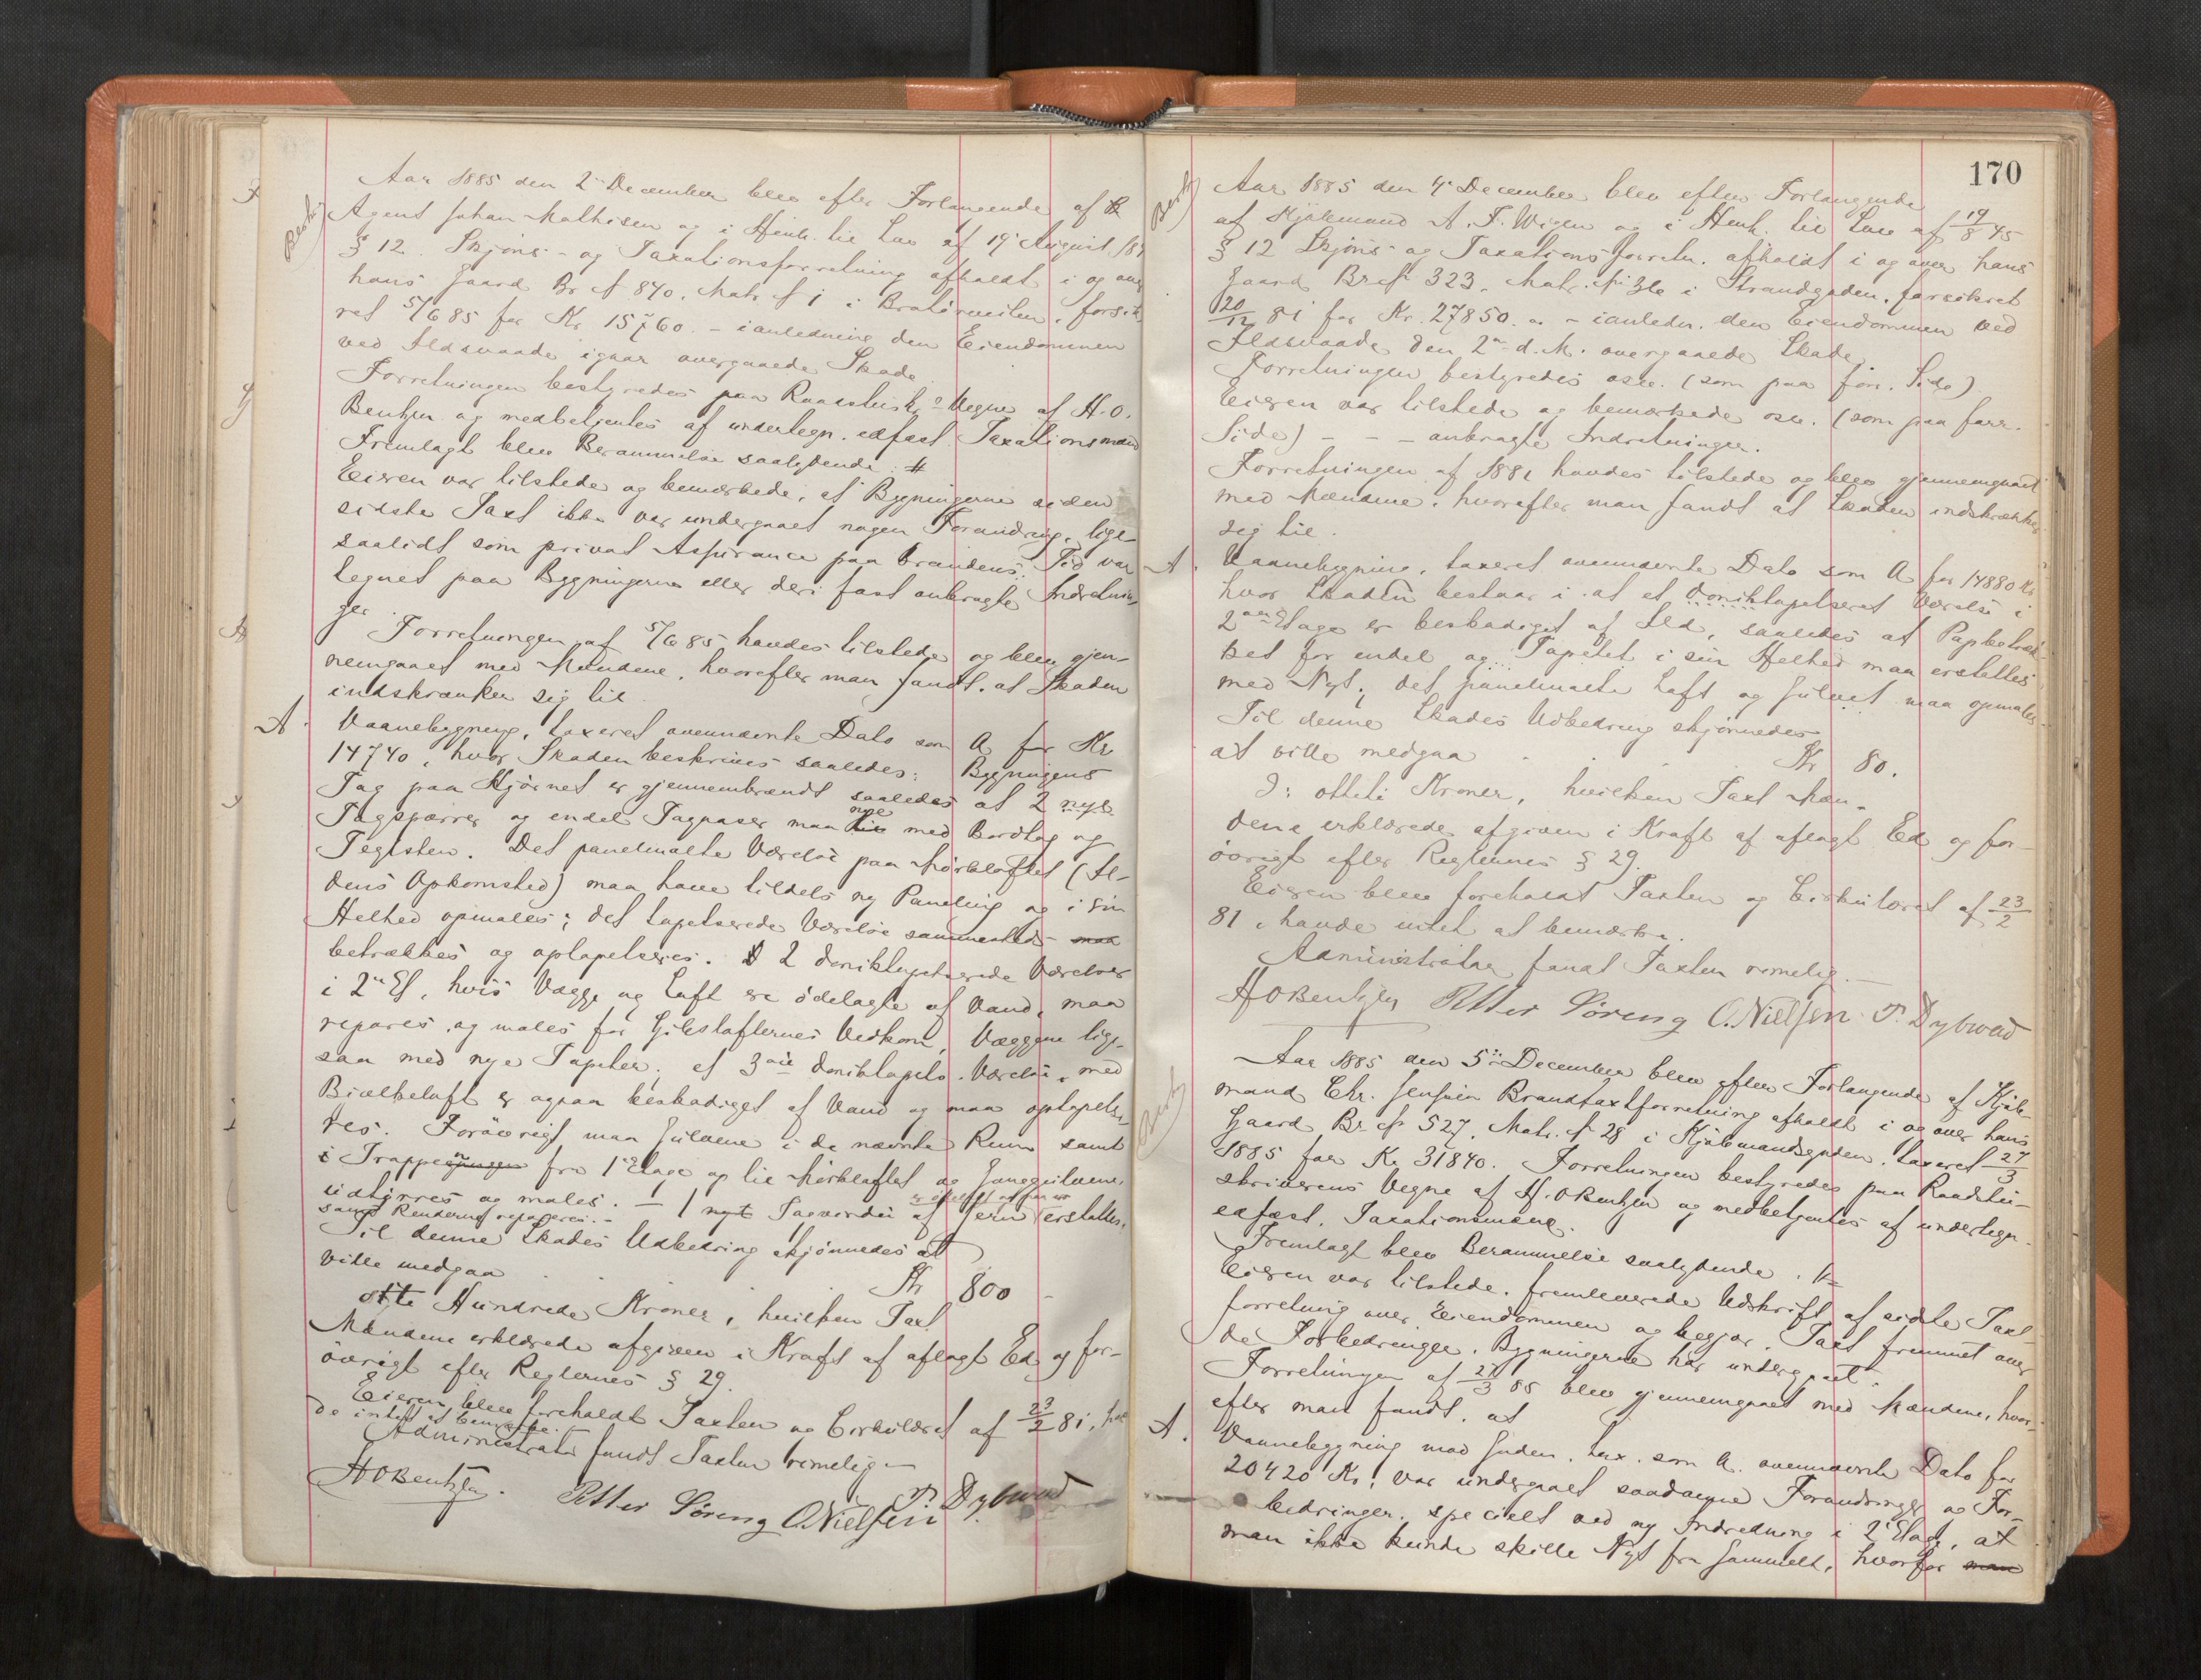 Aar 1885 den 2 December blev efter Forlangende af
Agent Johan Mathisen og i Henh. til Lov af 19 August 1845
§ 12 Skjøns- og Taxationsforretning afholdt i og over
hans Gaard Br № 840, Matr. № 1 i Bratørveiten, forsik-
ret 5/6 85 for Kr. 15760. - i anledning den Eiendommen
ved Ildsvaade igaar overgaaede Skade.
Forretningen bestyredes paa Raadstuskr.s Vegne af H. O.
Bentzen og medbetjentes af undertegn. edfæst. Taxationsmænd
Fremlagt blev Berammelse saalydende: #
Eieren var tilstede og bemærkede, at Bygningerne siden
sidste Taxt ikke var undergaaet nogen Forandring, lige-
saalidt som privat Assurance paa Brandens Tid var
tegnet paa Bygningerne eller deri fast anbragte Indretnin-
ger.
Forretningen af 5/6 85 havdes tilstede og blev gjen-
nemgaaet med Mændene, hvorefter man fandt, at Skaden
indskrænker sig til
A. Vaanebygning, taxeret ovennævnte Dato som A for Kr
14740, hvor Skaden beskrives saaledes: Bygningens
Tag paa Hjørnet er gjennembrændt saaledes at 2 nye
Tagsparrer og endel Tagaaser maa nye med Bordtag og
Teglsten. Det panelmalte Værelse paa Mørkloftet (Il-
dens Opkomsted) maa have tildels ny Paneling og i sin
Helhed opmales; det tapetserede Værelse sammesteds maa
betrækkes og optapetseres. 2 doniktapetserede Værelser
i 2 Et, hvis Vægge og Loft ere ødelagte af Vand, maa
repares og males for Gibslofternes Vedkom, Væggene lige-
saa med nye Tapeter; et 3die doniktapets. Værelse, med
Bjælkeloft er ogsaa beskadiget af Vand og maa optapetse-
res. Forøvrigt maa Gulvene i de nævnte Rum samt
i Trappe fra 1 Etage og til Mørkloftet og Ganggulvene
udtørres og males. - 1 nyt Tagvindu af Jern erstattes,
samt Renderne repareres. -
Til denne Skades Udbedring skjønnedes at
ville medgaa . . . Kr 800 -
otte Hundrede Kroner, hvilken Taxt
Mændene erklærede afgiven i Kraft af aflagt Ed og for-
øvrigt efter Reglernes § 29.
Eieren blev foreholdt Taxten og Cirkulæret af 23/2 81, hav-
de intet at bemærke.
Administrator fandt Taxten rimelig -
HOBentzen. Petter Søreng O. Nielsen P. Dybwad
170
Aar 1885 den 4 December blev efter Forlangende
af Kjøbmand A. F. Wigen og i Henh. til Lov af 19/8 45
§ 12 Skjøns og Taxationsforretn. afholdt i og over hans
Gaard Br № 323, Matr. № 36 i Strandgaden, forsikret
20/12 81 for Kr. 27850. - i anledn. den Eiendommen ved
Ildsvaade den 2 d. M. overgaaede Skade.
Forretningen bestyredes osv. (som paa forr. Side)
Eieren var tilstede og bemærkede osv. (som paa forr.
Side) - - - anbragte Indretninger.
Forretningen af 1881 havdes tilstede og blev gjennemgaaet
med Mændene, hvorefter man fandt at Skaden indskrænker
sig til.
A. Vaanebygning, taxeret ovennævnte Dato som A for 14880 Kr
hvor Skaden bestaar i at et doniktapetseret Værelse i
2den Etage er beskadiget af Ild, saaledes at Papbetræk-
ket for endel og Tapetet i sin Helhed maa erstattes
med Nyt; det panelmalte Loft og Gulvet maa opmales.
Til denne Skades Udbedring skjønnedes
at ville medgaa . . . . Kr 80.
D: otteti Kroner, hvilken Taxt Mæn-
dene erklærede afgiven i Kraft af aflagt Ed og for-
øvrigt efter Reglernes § 29.
Eieren blev foreholdt Taxten og Cirkulæret af 23/2
81, havde intet at bemærke.
Administrator fandt Taxten rimelig. -
HOBentzen Petter Søreng O. Nielsen P. Dybwad
Aar 1885 den 5 December blev efter Forlangende af Kjøb-
mand Chr. Jenssen Brandtaxtforretning afholdt i og over hans
Gaard Br № 527, Matr. № 28 i Kjøbmandsgaden, taxeret 27/3
1885 for Kr 31840. Forretningen bestyredes paa Raadstu-
skriverens Vegne af H. O Bentzen og medbetjentes af undertegn.
edfæst. Taxationsmænd.
Fremlagt blev Berammelse saalydende.
Eieren var tilstede, fremleverede Udskrift af sidste Taxt-
forretning over Eiendommen og begjær. Taxt fremmet over
de Forbedringer, Bygningerne har undergaaet.
Forretningen af 27/3 85 blev gjennemgaaet med Mændene, hvor-
efter man fandt, at
A. Vaanebygning mod Gaden, tax. som A. ovennævnte Dato for
20420 Kr; var undergaaet saadanne Forandringer og For-
bedringer, specielt ved ny Indredning i 2 Etage, at
man ikke kunde skille Nyt fra Gammelt, hvorfor man